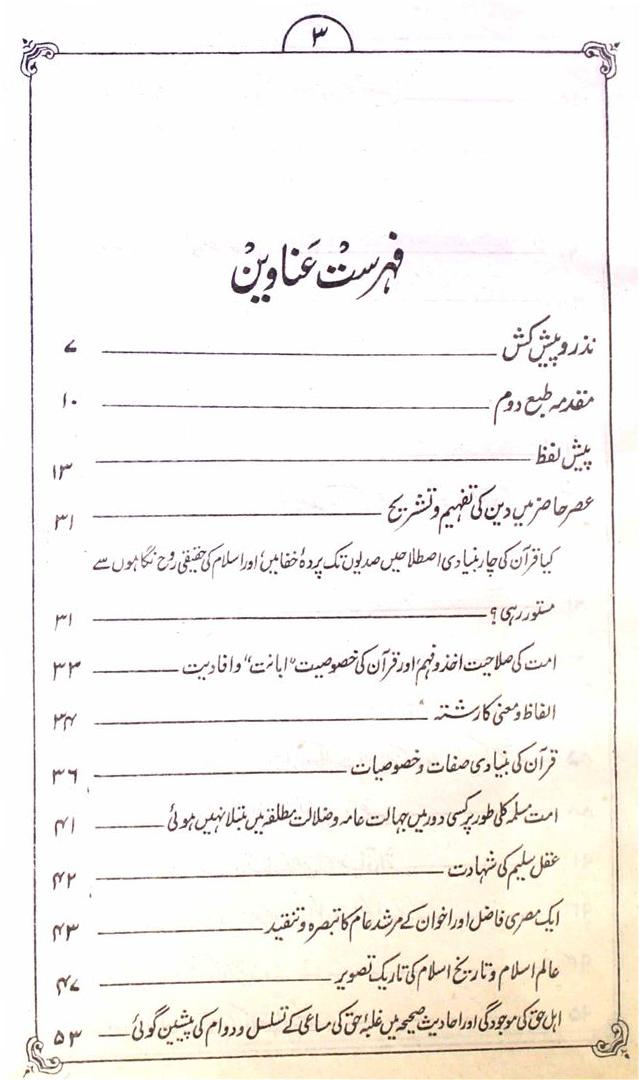 ۳
فہرست عناوین
نذر و پیش کش ۷
مقدمہ طبع دوم ۱۰
پیش لفظ ۱۳
عصر حاضر میں دین کی تفہیم و تشریح ۳۱
کیا قرآن کی چار بنیادی اصطلاحیں صدیوں تک پردۂ خفا میں، اور اسلام کی حقیقی روح نگاہوں سے
مستور رہی؟ ۳۱
امت کی صلاحیت اخذ و فہم، اور قرآن کی خصوصیت "ابانت" و افادیت ۳۳
الفاظ و معنی کا رشتہ ۳۴
قرآن کی بنیادی صفات و خصوصیات ۳۶
امت مسلمہ کلی طور پر کسی دور میں جہالت عامہ و ضلالت مطلقہ میں مبتلا نہیں ہوئی ۴۱
عقل سلیم کی شہادت ۴۲
ایک مصری فاضل اور اخوان کے مرشد عام کا تبصرہ و تنقید ۴۳
عالم اسلام و تاریخ اسلام کی تاریک تصویر ۴۷
اہل حق کی موجودگی اور احادیث صحیحہ میں غلبۂ حق کی مساعی کے تسلسل و دوام کی پیشین گوئی ۵۳